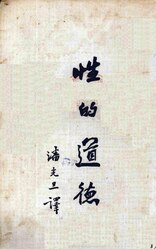 性的道德
潘光旦譯